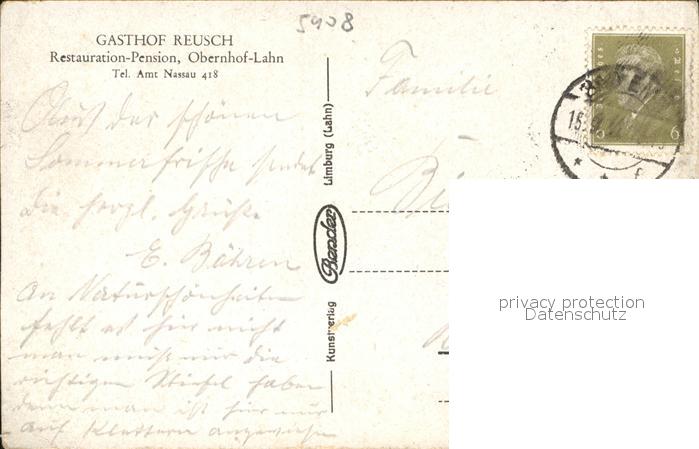 5408
GASTHOF REUSCH
Restauration-Pension, Obernhof-Lahn
Tel. Amt Nassau 418
Aus der schönen
Sommerfrische sendet
die herzl. Grüße
E. Bähren
An Naturschönheiten
fehlt es hier nicht
man muß nur die
richtigen Stiefel haben
denn man ist hier nur
auf Klettern angewiesen
Kunstverlag Bender Limburg (Lahn)
Familie
6
privacy protection
Datenschutz